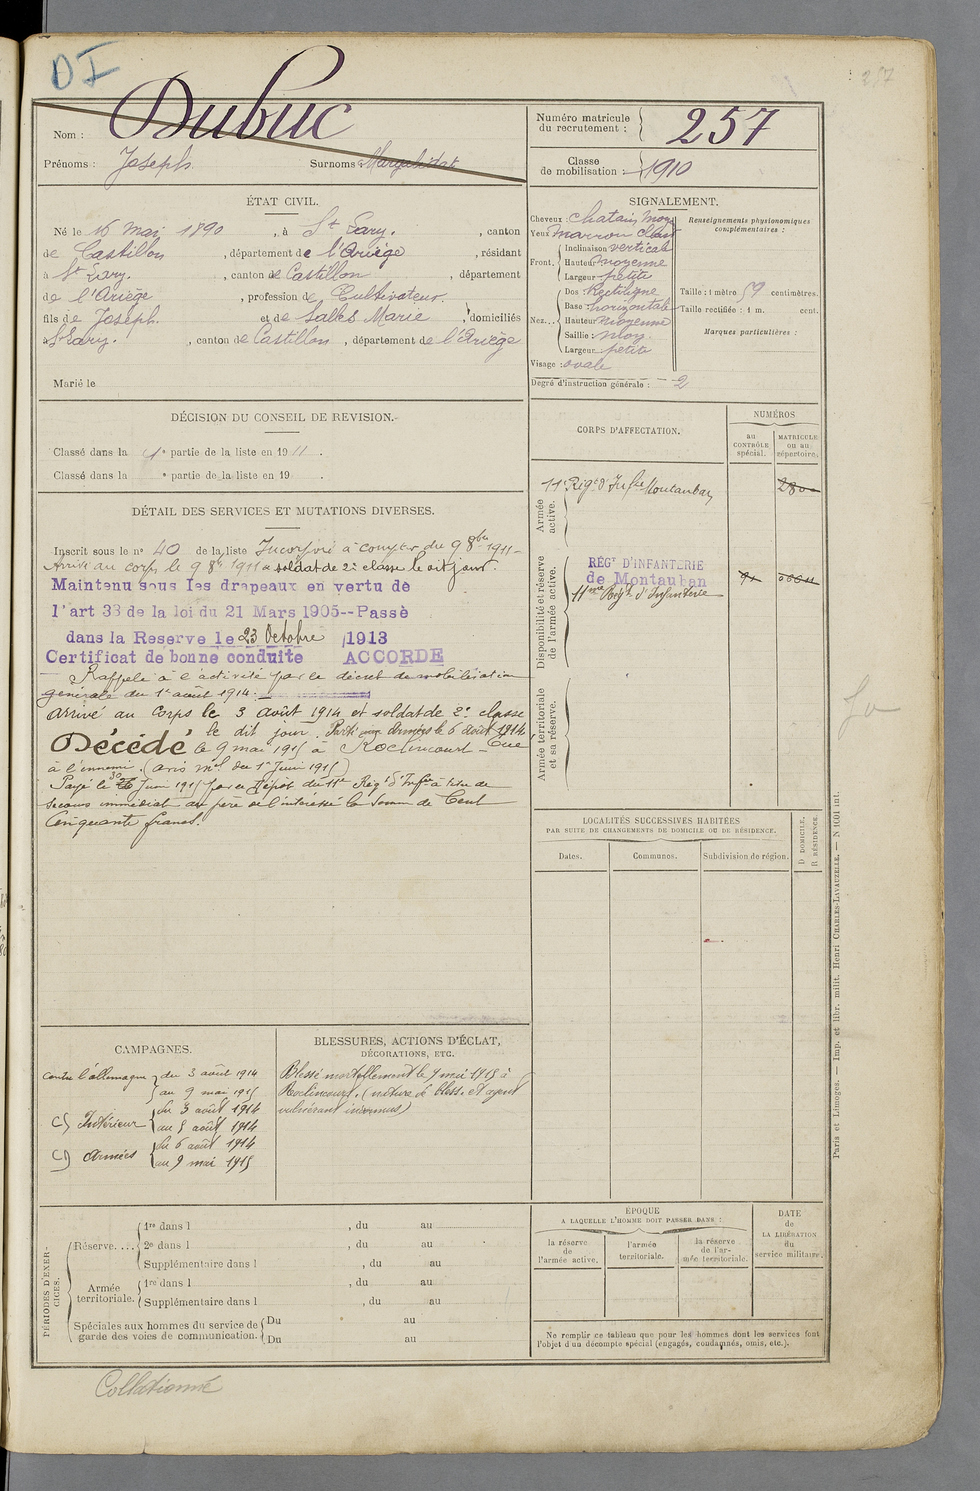 DI
257
Nom : Dubuc
Prénoms : Joseph. Surnoms
Numéro matricule du recrutement : 257
Classe de mobilisation : 1910
ÉTAT CIVIL.
Né le 16 mai 1890, à St Lary., canton
de Castillon, département de l'Ariège, résidant
à St Lary., canton de Castillon, département
de l'Ariège, profession de Cultivateur.
fils de Joseph. et de Salles Marie, domiciliés
à St Lary., canton de Castillon, département de l'Ariège
Marié le
SIGNALEMENT.
Cheveux : chatain moy
Yeux marron clair
Front. Inclinaison verticale
Hauteur moyenne
Largeur petite
Nez... Dos : Rectiligne
Base : horizontale
Hauteur moyenne
Saillie : moy.
Largeur petite
Visage : ovale
Renseignements physionomiques complémentaires :
Taille : 1 mètre 59 centimètres.
Taille rectifiée : 1 m. cent.
Marques particulières :
Degré d'instruction générale : 2
DÉCISION DU CONSEIL DE REVISION.
Classé dans la 1e partie de la liste en 1911.
Classé dans la e partie de la liste en 19 .
DÉTAIL DES SERVICES ET MUTATIONS DIVERSES.
Inscrit sous le no 40 de la liste Incorporé à compter du 9 8bre 1911
Arrivé au corps le 9 8bre 1911 & soldat de 2e classe le dit jour.
Maintenu sous les drapeaux en vertu de
l'art 33 de la loi du 21 Mars 1905--Passé
dans la Reserve le 23 Octobre 1913
Certificat de bonne conduite ACCORDE
Rappelé à l'activité par le décret de mobilisation
générale du 1er août 1914.
arrivé au Corps le 3 août 1914 et soldat de 2e classe
le dit jour. Parti aux Armées le 6 août 1914
Décédé le 9 mai 1915 à Roclincourt - Tué
à l'ennemi. (avis mel du 1er Juin 1915)
Payé le 30 Juin 1915 par le Dépôt du 11e Régt d'Infie à titre de
secours immédiat au père de l'intéressé la somme de Cent
Cinquante francs.
CORPS D'AFFECTATION.
NUMÉROS
au CONTRÔLE spécial.
MATRICULE ou au répertoire.
Armée active.
11e Régt d'Infie Montauban
2800
Disponibilité et réserve de l'armée active.
RÉGT D'INFANTERIE
de Montauban
11me Régt d'Infanterie
Armée territoriale et sa réserve.
LOCALITÉS SUCCESSIVES HABITÉES
PAR SUITE DE CHANGEMENTS DE DOMICILE OU DE RÉSIDENCE.
Dates.
Communes.
Subdivision de région.
D DOMICILE.
R RÉSIDENCE.
CAMPAGNES.
Contre l'allemagne du 3 août 1914
au 9 mai 1915
C) Intérieur du 3 août 1914
au 5 août 1914
C) Armées du 6 août 1914
au 9 mai 1915
BLESSURES, ACTIONS D'ÉCLAT,
DÉCORATIONS, ETC.
Blessé mortellement le 9 mai 1915 à
Roclincourt. (nature de bless. et agent
vulnérant inconnus)
PÉRIODES D'EXERCICES.
Réserve.... 1re dans l , du au
2e dans l , du au
Supplémentaire dans l , du au
Armée territoriale. 1re dans l , du au
Supplémentaire dans l , du au
Spéciales aux hommes du service de garde des voies de communication. Du au
Du au
ÉPOQUE
A LAQUELLE L'HOMME DOIT PASSER DANS :
la réserve de l'armée active.
l'armée territoriale.
la réserve de l'armée territoriale.
DATE de LA LIBÉRATION du service militaire.
Ne remplir ce tableau que pour les hommes dont les services font
l'objet d'un décompte spécial (engagés, condamnés, omis, etc.).
Paris et Limoges. — Imp. et libr. milit. Henri CHARLES-LAVAUZELLE. — N 1001 int.
Collationné